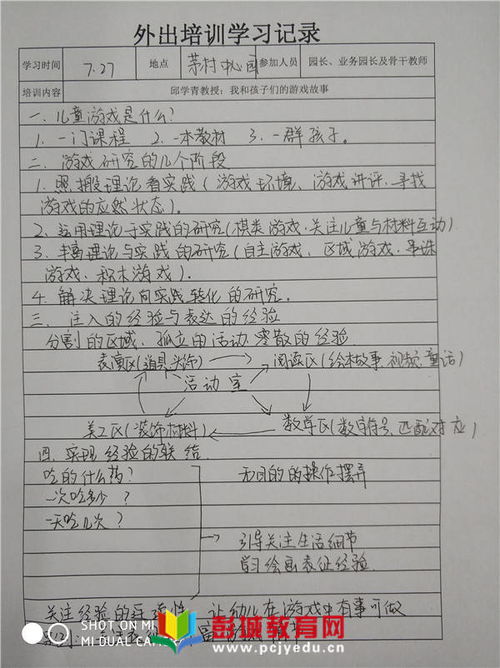 外出培训学习记录
学习时间 7.27 地点 茅村中心园 参加人员 园长、业务园长及骨干教师
培训内容 邱学青教授：我和孩子们的游戏故事
一、儿童游戏是什么？
1. 一门课程 2. 一本教材 3. 一群孩子。
二、游戏研究的几个阶段
1. 照搬理论看实践（游戏环境、游戏讲评、寻找
游戏的应然状态）。
2. 运用理论于实践的研究（棋类游戏、关注儿童与材料互动）
3. 丰富理论与实践的研究（自主游戏、区域游戏、
游戏、积木游戏）.
4. 解决理论向实践转化的研究.
三、注入的经验与表达的经验
分割的区域、孤立的活动 零散的经验
表演区（道具、头饰） 阅读区（绘本故事 视频 童话）
活动室
美工区（装饰材料） 数学区（数字符号、匹配对应）
四、实现经验的联结
吃的什么药？ 无目的的操作摆弄
一次吃多少？
一天吃几次？
引导关注生活细节
学习绘画表征经验
关注经验的连续性 让幼儿在游戏中有事可做
SHOT ON MI 8
MI DUAL CAMERA
彭城教育网
www.pcjyedu.cn